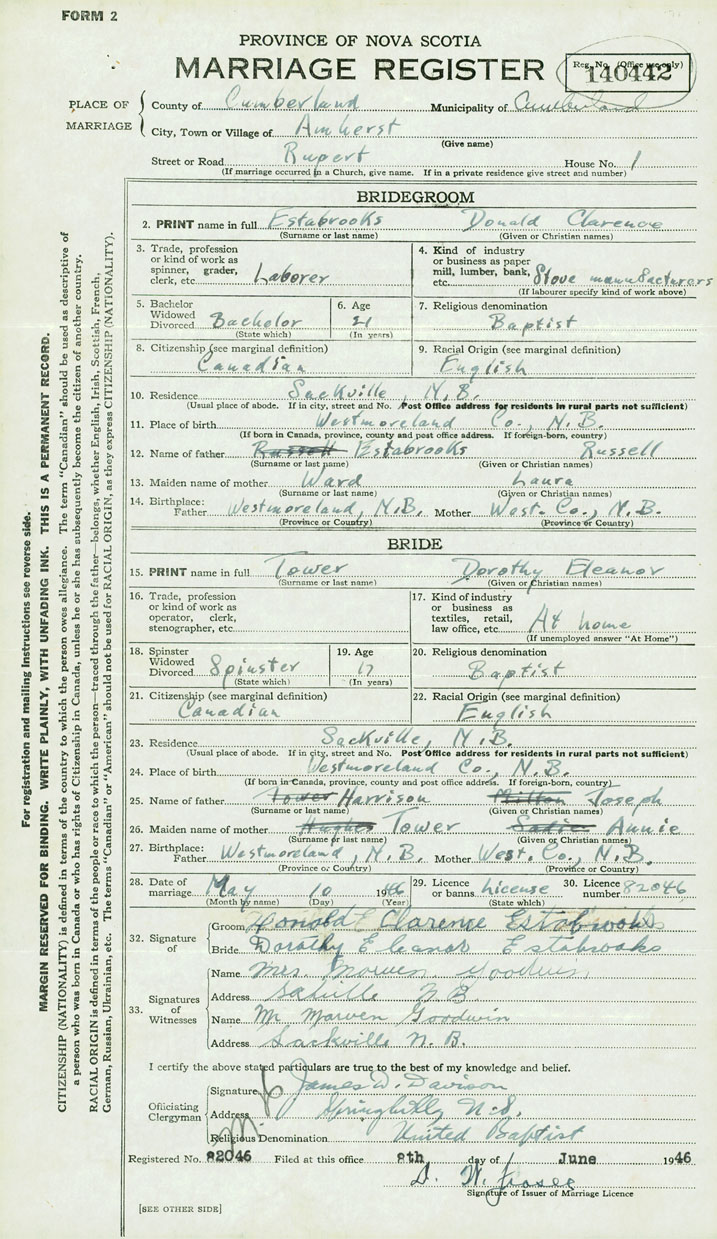 FORM 2
PROVINCE OF NOVA SCOTIA
MARRIAGE REGISTER
Reg. No. (Office use only)
140442
PLACE OF MARRIAGE
County of Cumberland Municipality of Cumberland
City, Town or Village of Amherst
(Give name)
Street or Road Rupert House No. 1
(If marriage occurred in a Church, give name. If in a private residence give street and number)
BRIDEGROOM
2. PRINT name in full Estabrooks Donald Clarence
(Surname or last name) (Given or Christian names)
3. Trade, profession or kind of work as spinner, grader, clerk, etc. Laborer
4. Kind of industry or business as paper mill, lumber, bank, etc. Stove manufacturers
(If labourer specify kind of work above)
5. Bachelor Widowed Divorced Bachelor
(State which)
6. Age 21
(In years)
7. Religious denomination
Baptist
8. Citizenship (see marginal definition)
Canadian
9. Racial Origin (see marginal definition)
English
10. Residence Sackville, N.B.
(Usual place of abode. If in city, street and No. Post Office address for residents in rural parts not sufficient)
11. Place of birth Westmoreland Co., N.B.
(If born in Canada, province, county and post office address. If foreign-born, country)
12. Name of father Russell Estabrooks Russell
(Surname or last name) (Given or Christian names)
13. Maiden name of mother Ward Laura
(Surname or last name) (Given or Christian names)
14. Birthplace: Father Westmoreland, N.B. Mother West. Co., N.B.
(Province or Country) (Province or Country)
BRIDE
15. PRINT name in full Tower Dorothy Eleanor
(Surname or last name) (Given or Christian names)
16. Trade, profession or kind of work as operator, clerk, stenographer, etc.
17. Kind of industry or business as textiles, retail, law office, etc. At home
(If unemployed answer "At Home")
18. Spinster Widowed Divorced Spinster
(State which)
19. Age 17
(In years)
20. Religious denomination
Baptist
21. Citizenship (see marginal definition)
Canadian
22. Racial Origin (see marginal definition)
English
23. Residence Sackville, N.B.
(Usual place of abode. If in city, street and No. Post Office address for residents in rural parts not sufficient)
24. Place of birth Westmoreland Co., N.B.
(If born in Canada, province, county and post office address. If foreign-born, country)
25. Name of father Tower Harrison Milton Joseph
(Surname or last name) (Given or Christian names)
26. Maiden name of mother Hughes Tower Sadie Annie
(Surname or last name) (Given or Christian names)
27. Birthplace: Father Westmoreland, N.B. Mother West. Co., N.B.
(Province or Country) (Province or Country)
28. Date of marriage May 10 1946
(Month by name) (Day) (Year)
29. Licence or banns License
(State which)
30. Licence number 82046
32. Signature of
Groom Donald Clarence Estabrooks
Bride Dorothy Eleanor Estabrooks
33. Signatures of Witnesses
Name Mrs. Marven Goodwin
Address Sakville N B
Name Mr Marven Goodwin
Address Sackville N. B.
I certify the above stated particulars are true to the best of my knowledge and belief.
Officiating Clergyman
Signature James W. Davison
Address Springhill, N.S.
Religious Denomination United Baptist
Registered No. 82046 Filed at this office 8th day of June 1946
Signature of Issuer of Marriage Licence
[SEE OTHER SIDE]
For registration and mailing instructions see reverse side.
MARGIN RESERVED FOR BINDING. WRITE PLAINLY, WITH UNFADING INK. THIS IS A PERMANENT RECORD.
CITIZENSHIP (NATIONALITY) is defined in terms of the country to which the person owes allegiance. The term "Canadian" should be used as descriptive of
a person who was born in Canada or who has rights of Citizenship in Canada, unless he or she has subsequently become the citizen of another country.
RACIAL ORIGIN is defined in terms of the people or race to which the person—traced through the father—belongs, whether English, Irish, Scottish, French,
German, Russian, Ukrainian, etc. The terms "Canadian" or "American" should not be used for RACIAL ORIGIN, as they express CITIZENSHIP (NATIONALITY).